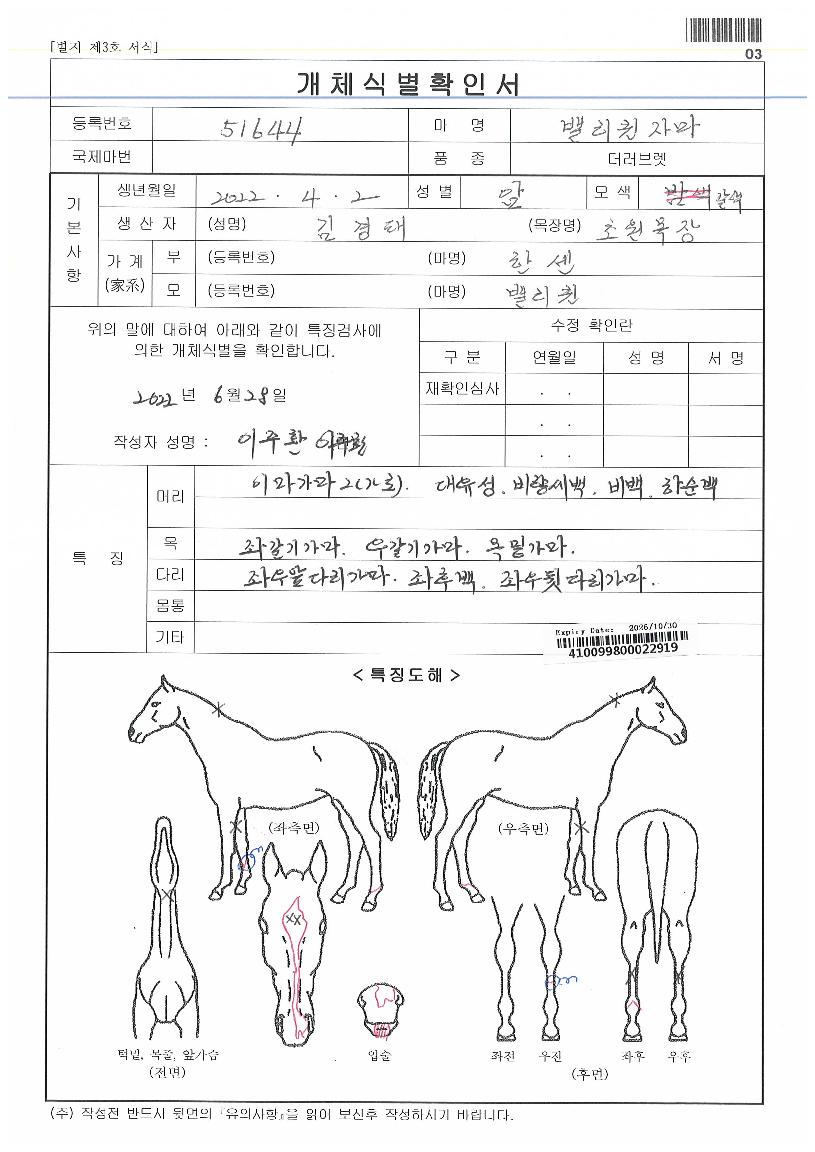 [별지 제3호 서식]
03
개체식별확인서
등록번호 51644 마 명 밸리퀸자마
국제마번 품 종 더러브렛
기본사항
생년월일 2022 . 4 . 2 성 별 암 모 색 밤색 갈색
생 산 자 (성명) 김경태 (목장명) 초원목장
가 계 (家系) 부 (등록번호) (마명) 한센
모 (등록번호) (마명) 밸리퀸
위의 말에 대하여 아래와 같이 특징검사에
의한 개체식별을 확인합니다.
2022년 6월 28일
작성자 성명 : 이주환
수정 확인란
구 분 연월일 성 명 서 명
재확인심사 . .
. .
. .
특 징
머리 이마가마2(가로). 대유성. 비량세백. 비백. 하순백
목 좌갈기가마. 우갈기가마. 목밑가마.
다리 좌우앞다리가마. 좌후백. 좌우뒷다리가마.
몸통
기타
Expiry Date: 2026/10/30
410099800022919
< 특징도해 >
(좌측면) (우측면)
턱밑, 목줄, 앞가슴
(전면)
입술
좌전 우전 좌후 우후
(후면)
(주) 작성전 반드시 뒷면의 『유의사항』을 읽어 보신후 작성하시기 바랍니다.